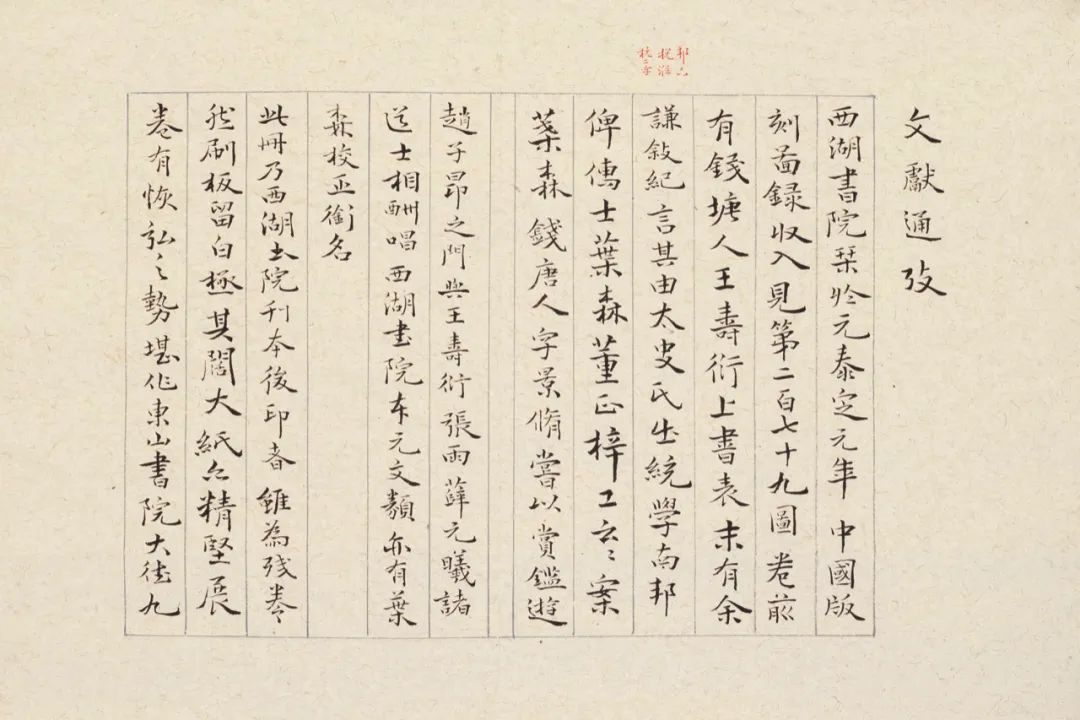 文獻通攷
西湖書院栞於元泰定元年 中國版
刻啚録收入見第二百七十九圖 卷前
有錢塘人王壽衍上書表末有余
謙敍紀言其由太史氏出統學南邦
俾儁士葉森董正梓工云〻案
葉森錢唐人字景脩嘗以賞鑑遊
趙子昂之門與王壽衍張雨薛元曦諸
道士相酬唱 西湖書院本元文類亦有葉
森校正銜名
此冊乃西湖書院刊本後印者 雖為殘卷
然刷板留白極其闊大紙亦精堅展
卷有恢弘之勢堪作東山書院大德九